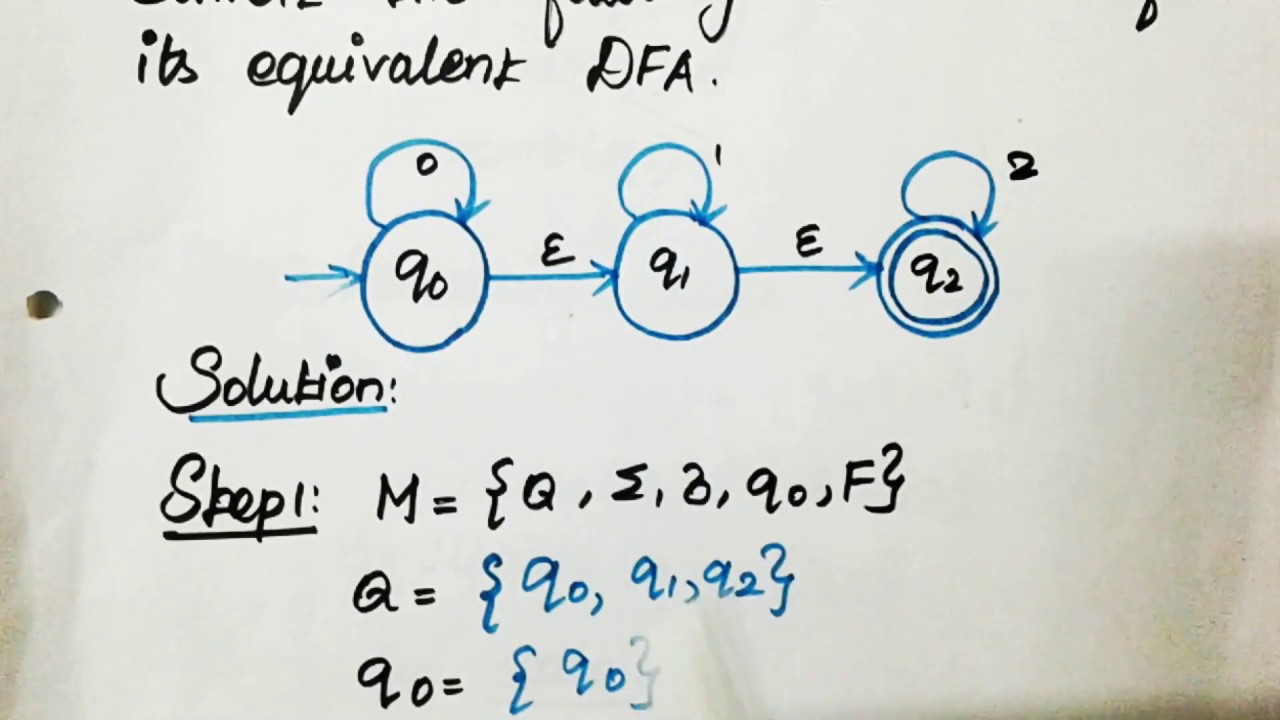 its equivalent DFA.
0 1 2
ε ε
q0 q1 q2
Solution:
Step1: M = {Q, Σ, δ, q0, F}
Q = {q0, q1, q2}
q0 = {q0}